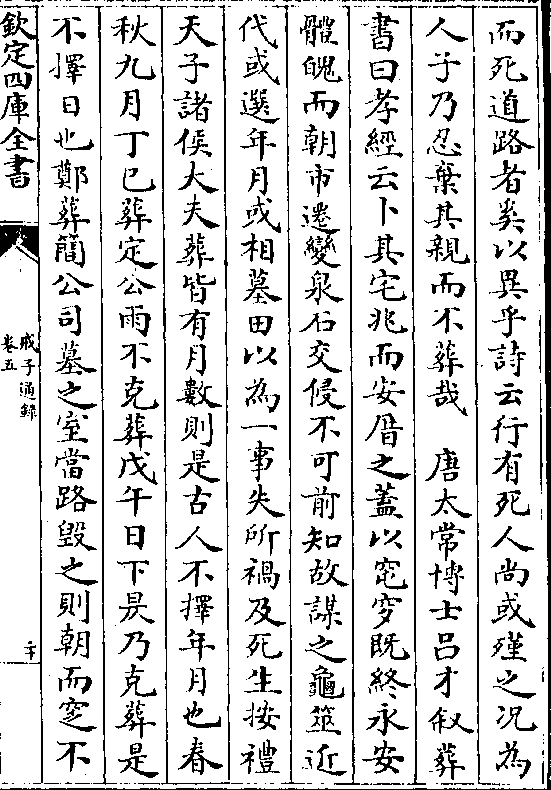 而死道路者奚以異乎詩云行有死人尚或殣之况為
人子乃忍棄其親而不葬哉　唐太常博士呂才叙葬
書曰孝經云卜其宅兆而安厝之蓋以窀穸既終永安
體魄而朝市遷變泉石交侵不可前知故謀之龜筮近
代或選年月或相墓田以為一事失所禍及死生按禮
天子諸侯大夫葬皆有月數則是古人不擇年月也春
秋九月丁巳葬定公雨不克葬戊午日下昃乃克葬是
不擇日也鄭葬簡公司墓之室當路毀之則朝而窆不
欽定四庫全書
戒子通錄
卷五
二十